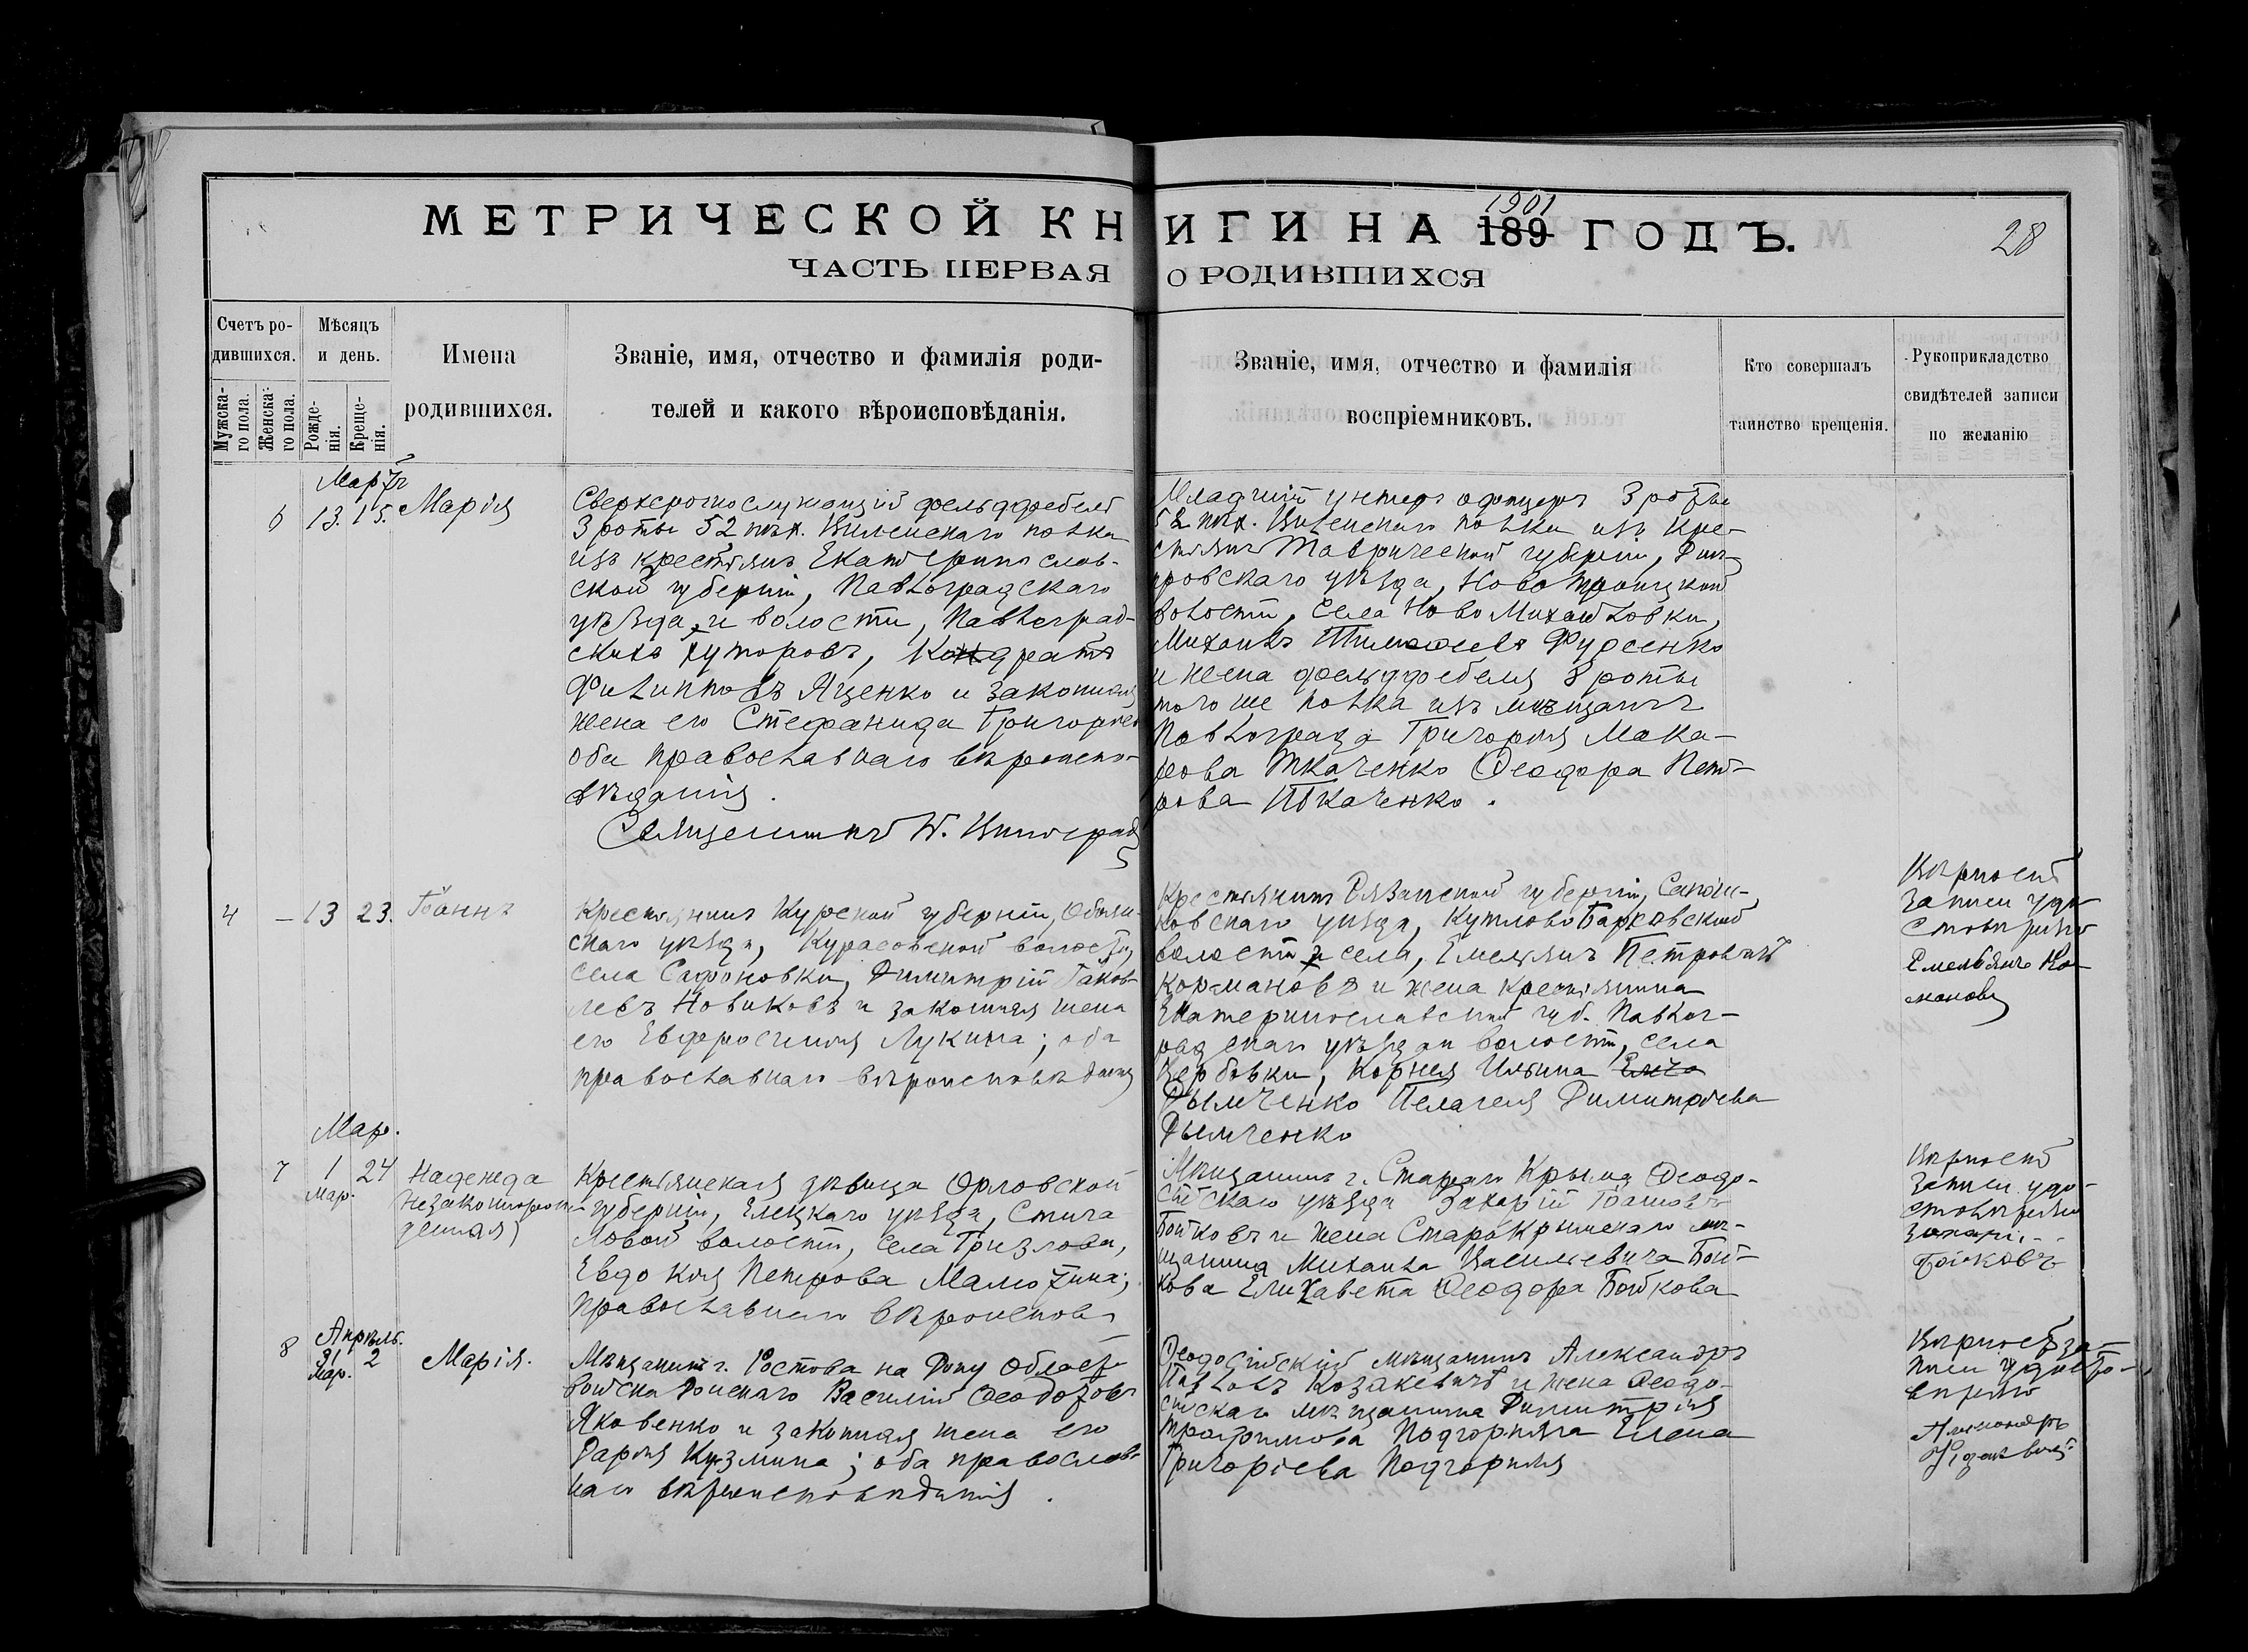 МЕТРИЧЕСКОЙ КНИГИ НА 1901 189 ГОДЪ.
28
ЧАСТЬ ПЕРВАЯ О РОДИВШИХСЯ
Счетъ ро-
дившихся.
Мужска-
го пола.
Женска-
го пола.
Мѣсяцъ
и день.
Рожде-
нія.
Креще-
нія.
Имена
родившихся.
Званіе, имя, отчество и фамилія роди-
телей и какого вѣроисповѣданія.
Званіе, имя, отчество и фамилія
воспріемниковъ.
Кто совершалъ
таинство крещенія.
Рукоприкладство
свидѣтелей записи
по желанію
Мартъ
6 13. 15. Марія
Сверхсрочнослужащій фельдфебель
3 роты 52 пѣх. Виленскаго полка
изъ крестьянъ Екатеринослав-
ской губерніи, Павлоградскаго
уѣзда и волости, Павлоград-
скихъ хуторовъ, Кондратъ
Филипповъ Яценко и законная
жена его Стефанида Григорьев
оба православнаго вѣроиспо-
вѣданія.
Священникъ Виноград
Младшій унтеръ офицеръ 3 роты
52 пѣх. Виленскаго полка изъ кре-
стьянъ Таврической губерніи, Днѣ-
провскаго уѣзда, Ново Троицкой
волости, села Ново Михайловки,
Михаилъ Тимофеевъ Фурсенко
и жена фельдфебеля 8 роты
того же полка изъ мѣщанъ
Павлограда Григорія Мака-
рова Ткаченко Ѳеодора Пет-
рова Ткаченко.
4 — 13 23. Іоаннъ
Крестьянинъ Курской губерніи, Обоян-
скаго уѣзда, Курасовской волости,
села Сафоновки, Димитрій Іаков-
левъ Новиковъ и законная жена
его Евфросинія Лукина; оба
православнаго вѣроисповѣданія
Крестьянинъ Рязанской губерніи, Сапож-
ковскаго уѣзда, Кутлово Барковской
волости и села, Емельянъ Петровъ
Кормановъ и жена крестьянина
Екатеринославской губ. Павлог-
радскаго уѣзда и волости, села
Вербовки, Корнея Ильина
Дымченко Пелагея Димитріева
Дымченко
Вѣрность
записи удо-
стовѣряю
Емельянъ Ко-
мановъ
Мар.
7 1 24 Надежда
Мар. (незаконнорож-
денная)
Крестьянская дѣвица Орловской
губерніи, Елецкаго уѣзда, Стига
ловой волости, села Гризлова,
Евдокія Петрова Малютина;
православнаго вѣроисповѣ
Мѣщанинъ г. Стараго Крыма Ѳеодо-
сійскаго уѣзда Захарій Іоанновъ
Бойковъ и жена Старокрымскаго мѣ-
щанина Михаила Васильевича Бой-
кова Елизавета Ѳеодора Бойкова
Вѣрность
записи удо-
стовѣряю
Захарі
Бойковъ
Апрѣль.
8 31 2 Марія.
Мар.
Мѣщанинъ г. Ростова на Дону Област
войска Донскаго Василій Ѳеодоровъ
Яковенко и законная жена его
Дарія Кузмина; оба православ-
наго вѣроисповѣданія.
Ѳеодосійскій мѣщанинъ Александръ
Павловъ Козакевичъ и жена Ѳеодо-
сійскаго мѣщанина Димитрія
Трофимова Подгорняга Елена
Григоріева Подгорная
Вѣрность за-
писи удосто-
вѣряю
Александръ